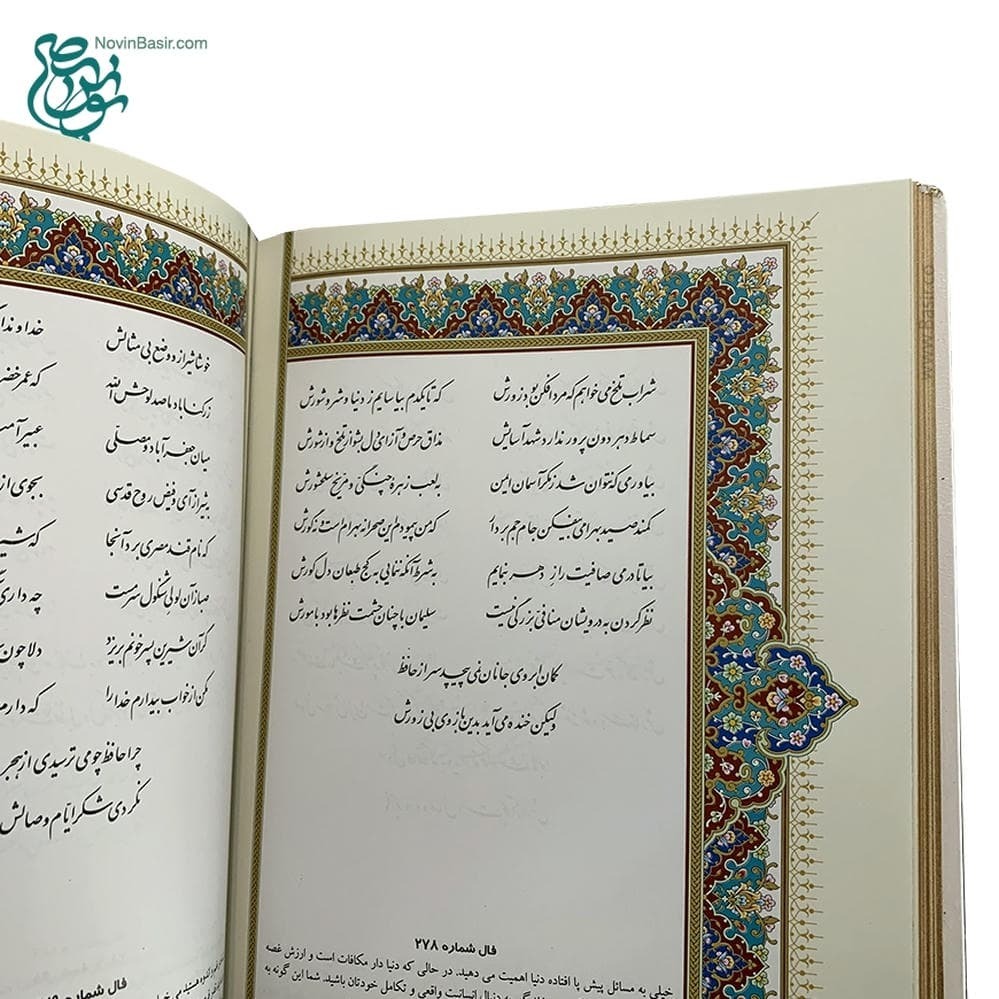 NovinBasir.com
شراب تلخ می خواهم که مرد افکن بود زورش که تا یکدم بیاسایم ز دنیا و شر و شورش
سماط دهر دون پرور ندارد شهد آسایش مذاق حرص و آز ای دل بشو از تلخ و از شورش
بیاور می که نتوان شد ز مکر آسمان ایمن به لعب زهره چنگی و مریخ سلحشورش
کمند صید بهرامی بیفکن جام جم بردار که من پیمودم این صحرا نه بهرام است و نه گورش
بیا تا در می صافیت راز دهر بنمایم به شرط آنکه ننمایی به کج طبعان دل کورش
نظر کردن به درویشان منافی بزرگی نیست سلیمان با چنان حشمت نظرها بود با مورش
کمان ابروی جانان نمی پیچد سر از حافظ
ولیکن خنده می آید بدین بازوی بی زورش
فال شماره ۲۷۸
خیلی به مسائل پیش پا افتاده دنیا اهمیت می دهید. در حالی که دنیا دار مکافات است و ارزش غصه
به دنبال انسانیت واقعی و تکامل خودتان باشید. شما این گونه به
خوشا شیراز و وضع بی مثالش خداوندا
ز رکناباد ما صد لوحش الله که عمر خضر
میان جعفرآباد و مصلی عبیر آمیز
به شیراز آی و فیض روح قدسی بجوی از
که نام قند مصری برد آنجا که شیرینان
صبا زان لولی شنگول سرمست چه داری
گر آن شیرین پسر خونم بریزد دلا چون
مکن از خواب بیدارم خدا را که دارم
چرا حافظ چو می ترسیدی از هجر
نکردی شکر ایام وصالش
فال شماره